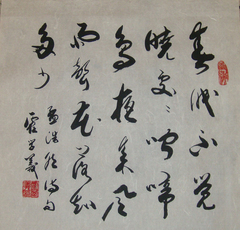 春眠不覺
曉處々聞啼
鳥夜來風
雨聲花落知
多少
孟浩然詩